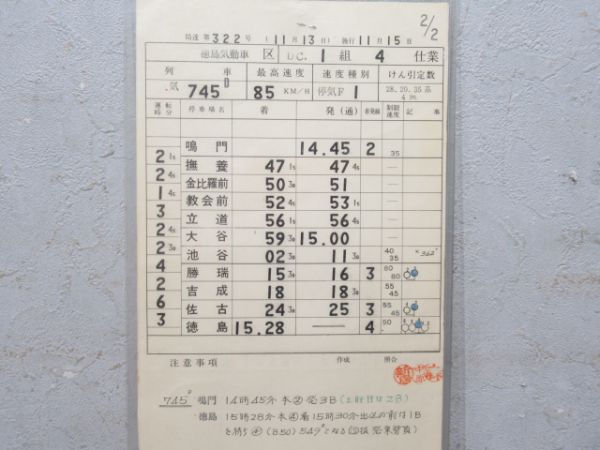 2/2
局達第322号 (11月13日) 施行11月15日
徳島気動車区 DC. 1組 4 仕業
列車 最高速度 速度種別 けん引定数
気 745D 85 KM/H 停気F1 28.20.35系
運転時分 停車場名 着 発(通) 着発線 制限速度 記事
鳴門 14.45 2 35
2 1s 撫養 47 1s 47 4s —
2 4s 金比羅前 50 3s 51 —
1 4s 教会前 52 4s 53 1s —
3 立道 56 4s 56 4s —
2 4s 大谷 59 3s 15.00 —
2 3s 池谷 02 3s 11 3s 40 35
4 勝瑞 15 3s 16 3 60 60
2 吉成 18 18 3s 55 45
6 佐古 24 3s 25 3 55 45
3 徳島 15.28 — 4 50 -
注意事項 作成 照合
745D 鳴門 14時45分 本②発3B
徳島 15時28分 本④着15時30分